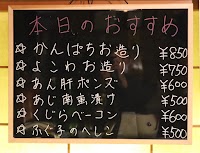 本日のおすすめ
☆かんぱちお造り ¥850
☆よこわお造り ¥750
☆あん肝ポンズ ¥600
☆あじ南蛮漬け ¥500
☆くじらベーコン ¥600
☆ふぐ子のヘレン ¥500